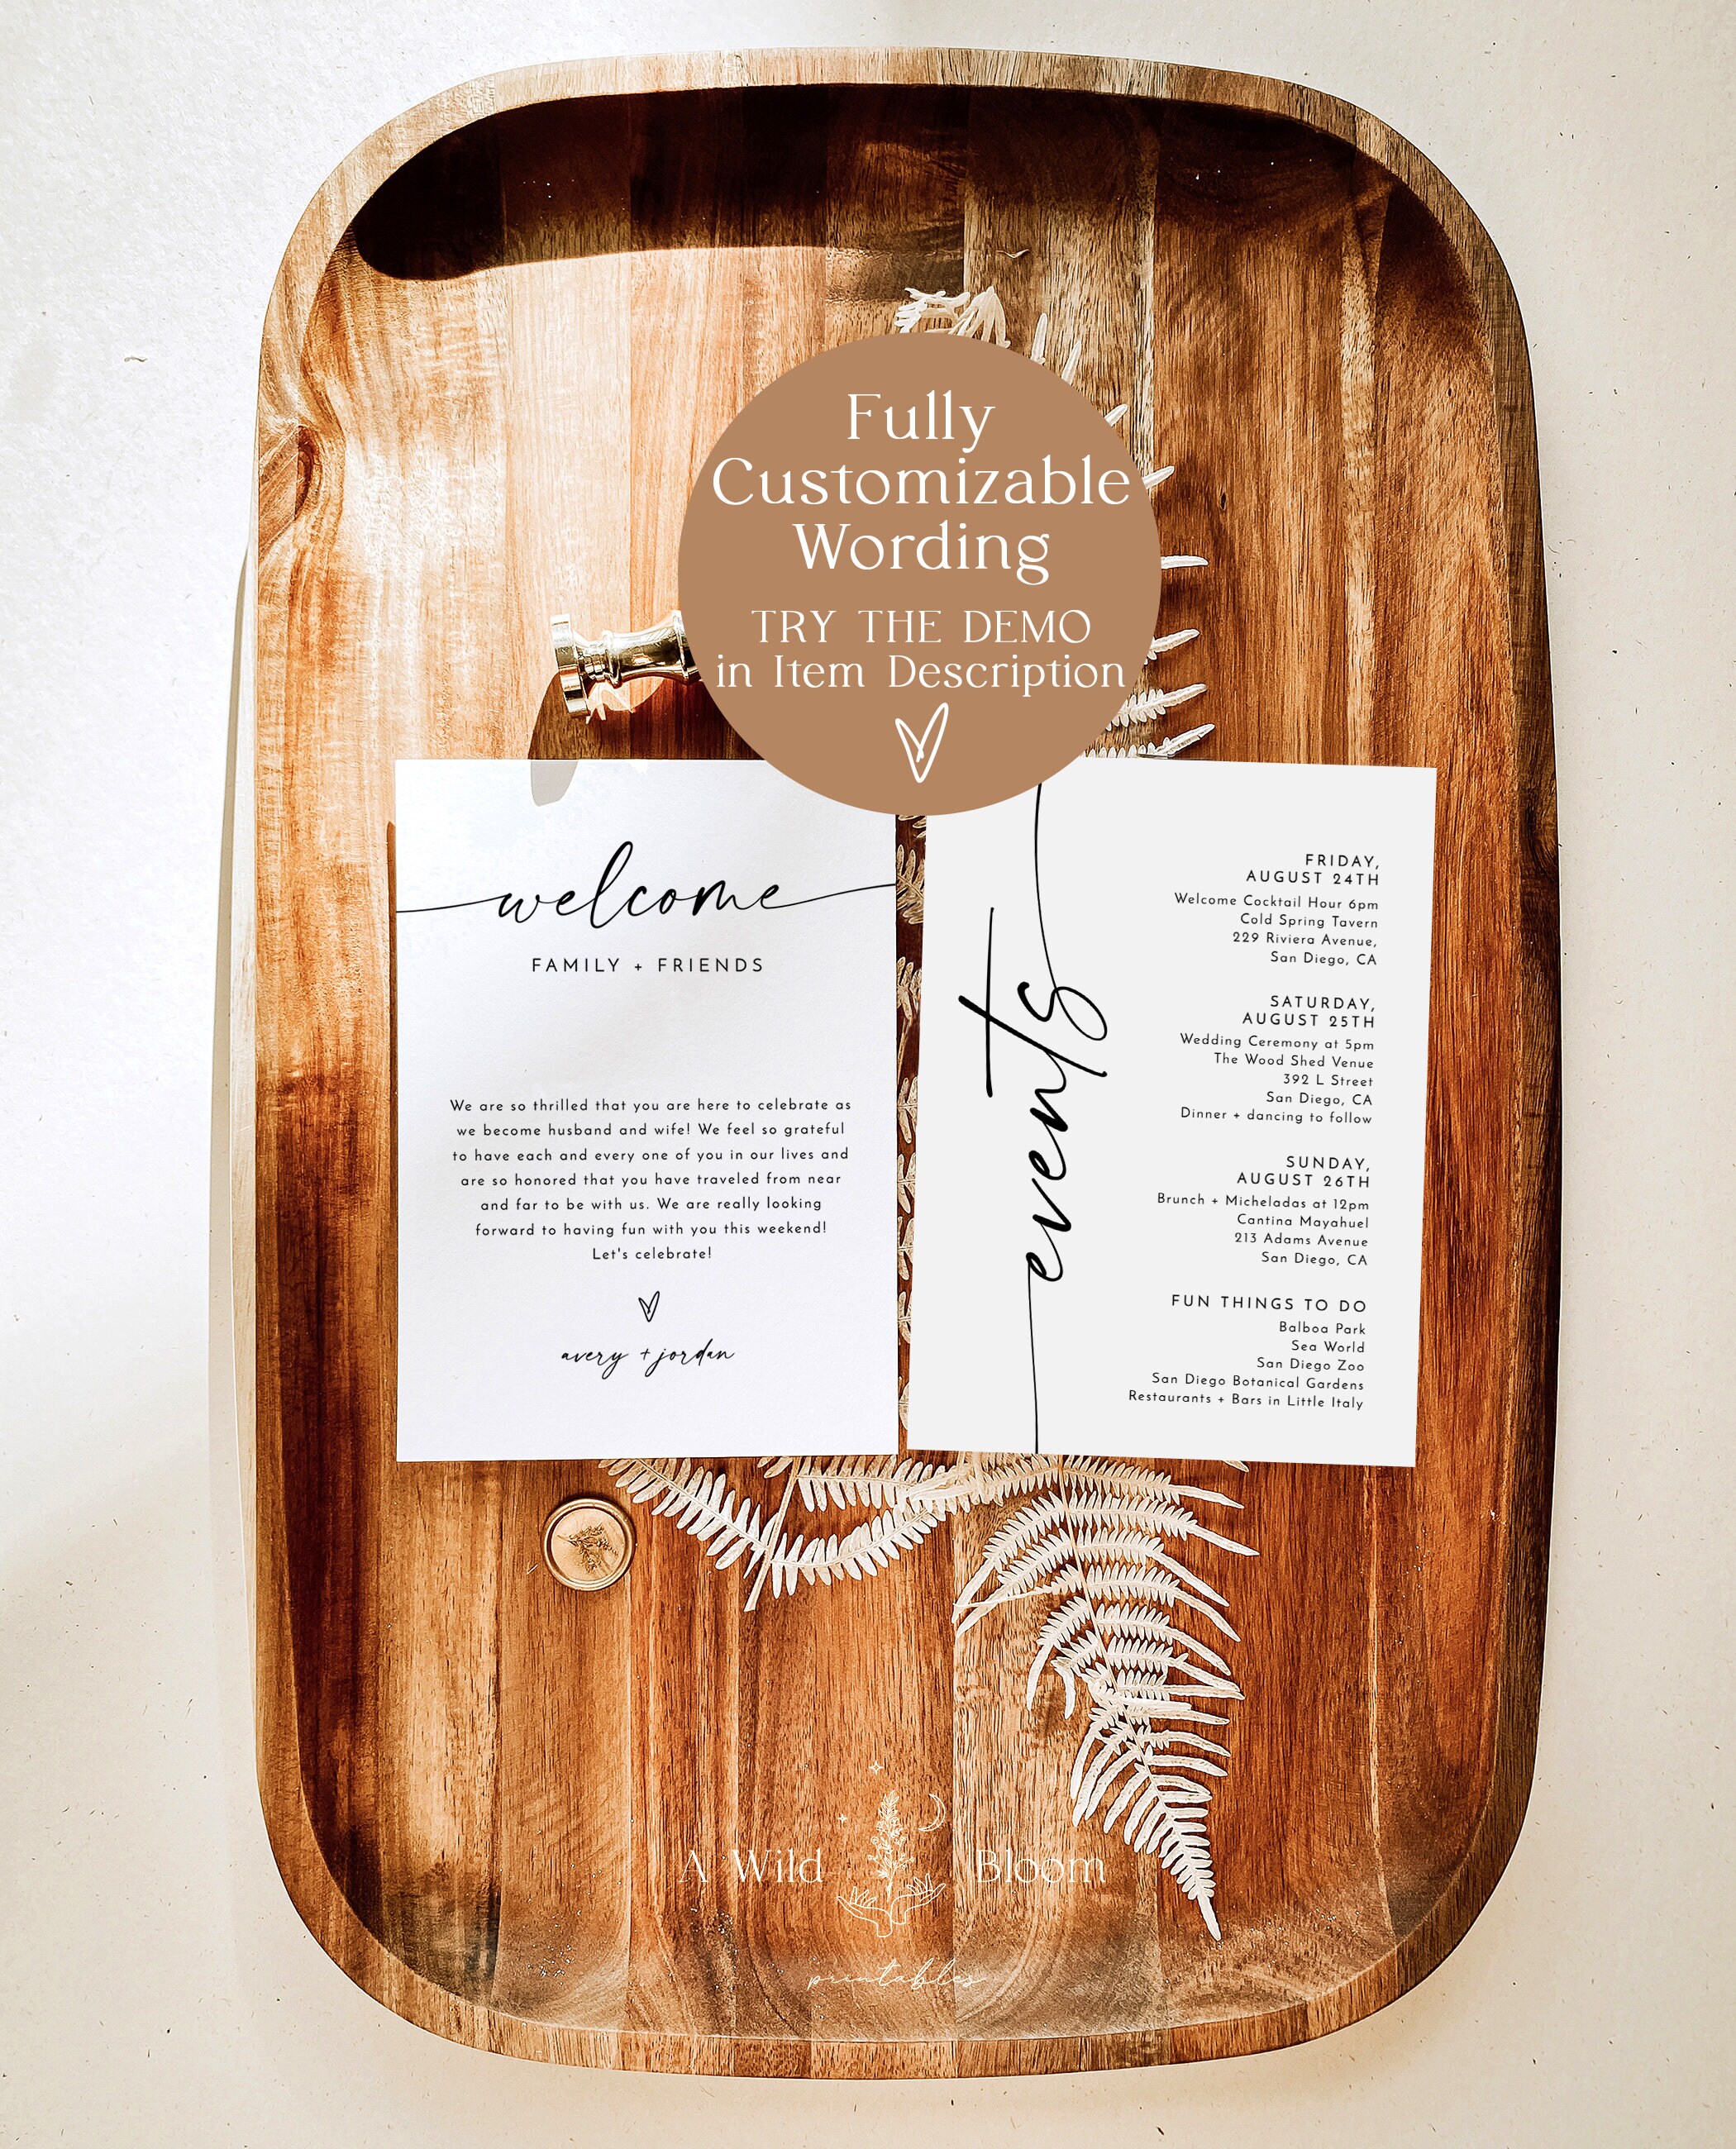 Fully
Customizable
Wording
TRY THE DEMO
in Item Description
welcome
FAMILY + FRIENDS
We are so thrilled that you are here to celebrate as
we become husband and wife! We feel so grateful
to have each and every one of you in our lives and
are so honored that you have traveled from near
and far to be with us. We are really looking
forward to having fun with you this weekend!
Let's celebrate!
avery + jordan
events
FRIDAY,
AUGUST 24TH
Welcome Cocktail Hour 6pm
Cold Spring Tavern
229 Riviera Avenue,
San Diego, CA
SATURDAY,
AUGUST 25TH
Wedding Ceremony at 5pm
The Wood Shed Venue
392 L Street
San Diego, CA
Dinner + dancing to follow
SUNDAY,
AUGUST 26TH
Brunch + Micheladas at 12pm
Cantina Mayahuel
213 Adams Avenue
San Diego, CA
FUN THINGS TO DO
Balboa Park
Sea World
San Diego Zoo
San Diego Botanical Gardens
Restaurants + Bars in Little Italy
A Wild Bloom
printables